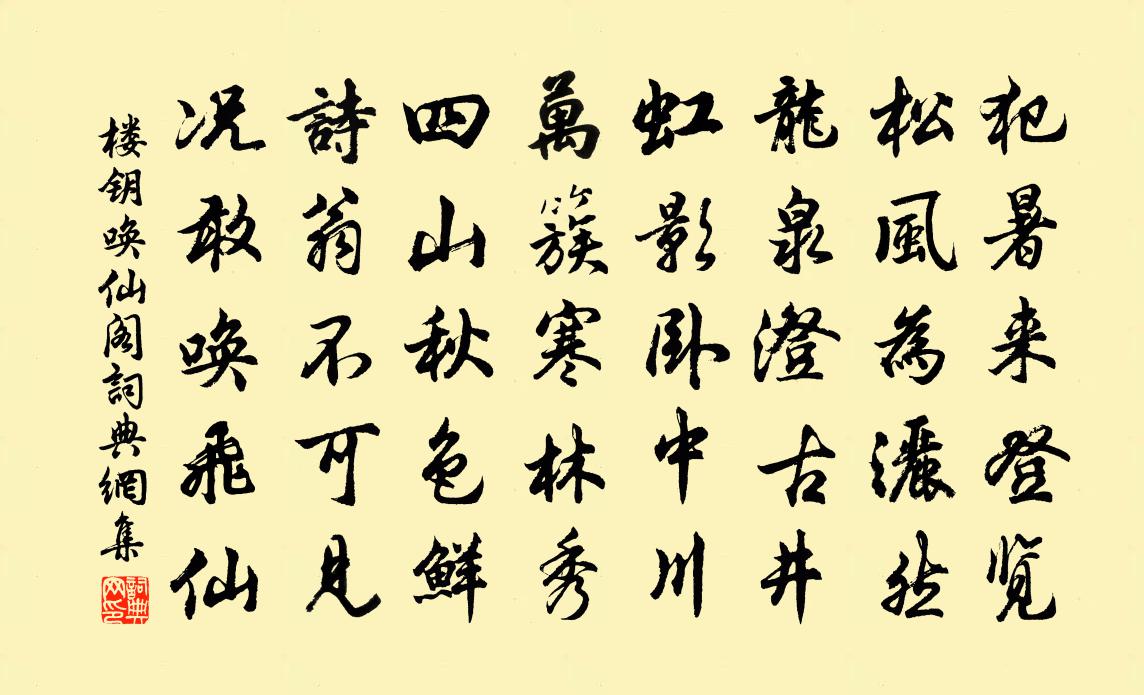 犯暑来登览
松風為灑然
龍泉澄古井
虹影卧中川
萬簇寒林秀
四山秋色鮮
詩翁不可見
况敢唤飛仙
楼钥唤仙阁詞典網集
詞典网印